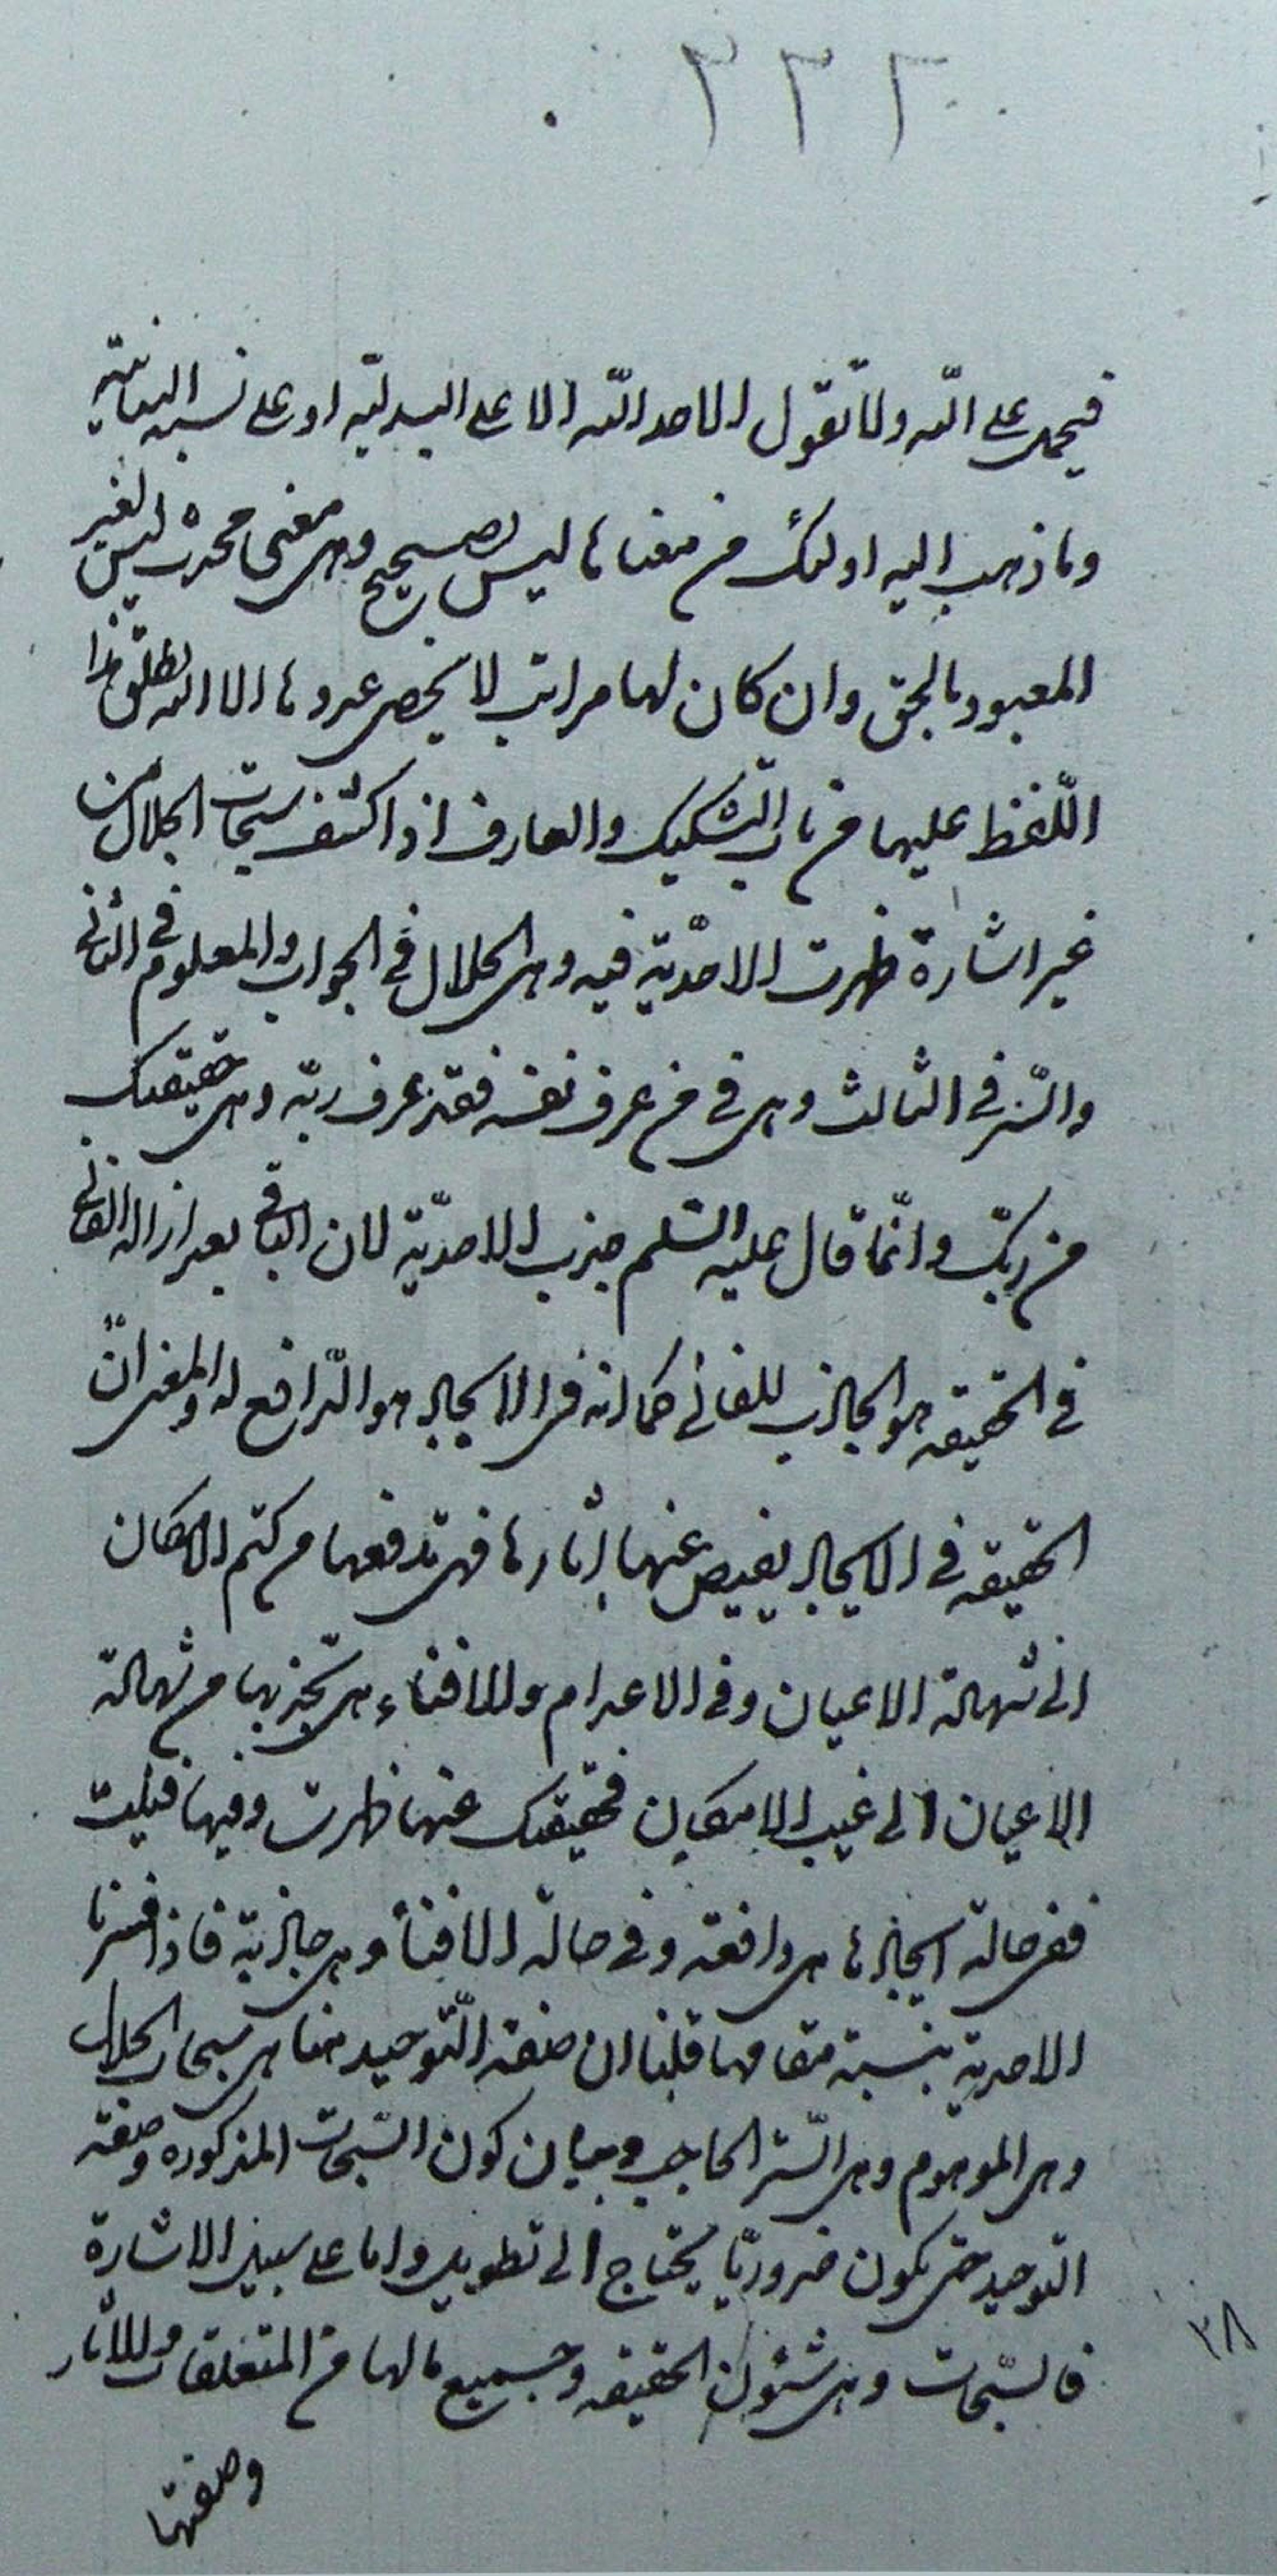 ٢٣٢
فيحمل على اللّه ولا تقول الاحد اللّه الا على البدليّه او على نسبه البيانيّه
وما ذهب اليه اولئك من معناها ليس بصحيح وهى معنى محدث ليس لغير
المعبود بالحق وان كان لها مراتب لا يحصى عددها الا اللّه يطلق هذا
اللّفظ عليها من باب التّشكيك والعارف اذا كشف سبحات الجلال من
غير اشارة ظهرت الاحدّيّة فيه وهى الجلال فى الجواب والمعلوم فى الثانى
والسّر فى الثالث وهى فى من عرف نفسه فقد عرف ربّه وهى حقيقتك
من ربّك وانّما قال عليه السّلم جذب الاحديّة لان الباقى بعد ازاله الفانى
فى الحقيقه هو الجاذب للفانى كما انه فى الايجاد هو الدّافع له والمعنى انّ
الحقيقه فى الايجاد يفيض عنها اثارها فهى تدفعها من كتم الامكان
الى شهادة الاعيان وفى الاعدام والافناء هى تجذبها من شهادة
الاعيان الى غيب الامكان فحقيقتك عنها ظهرت وفيها فنيت
ففى حالة ايجادها هى دافعته وفى حالة الافناء هى جاذبة فاذا فسرنا
الاحدية بنسبة مقامها قلنا ان صفة التّوحيد هنا هى سبحات الجلال
وهى الموهوم وهى السّتر الحاجب وبيان كون السّبحات المذكوره وصفة
التوحيد حتى يكون ضروريّا يحتاج الى تطويل واما على سبيل الاشارة
فالسّبحات وهى شئون الحقيقه وجميع ما لها من المتعلقات والاثار
وصفتها
٢٨